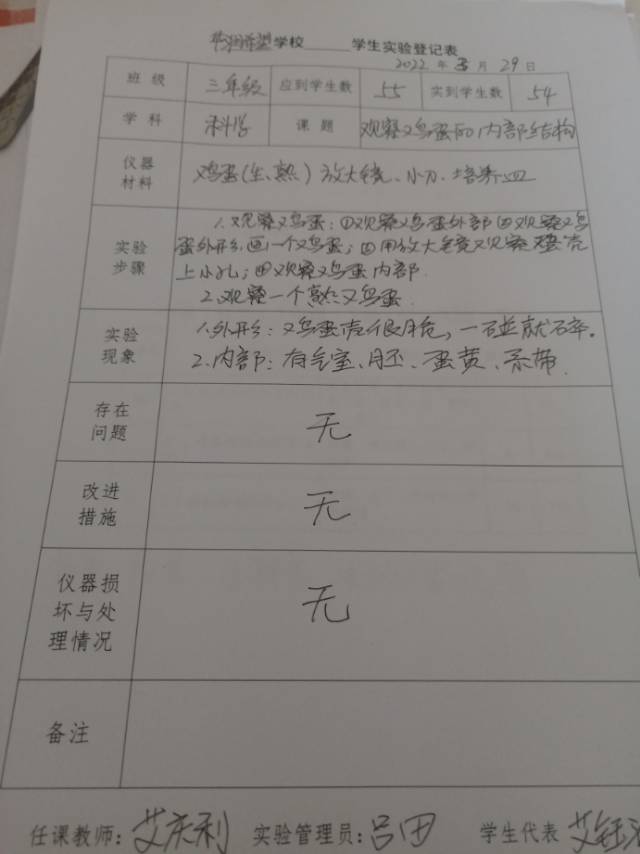 学校 学生实验登记表
2022 年 3 月 29 日
班级 三年级 应到学生数 55 实到学生数 54
学科 科学 课题 观察鸡蛋的内部结构
仪器材料 鸡蛋(生、熟) 放大镜、小刀、培养皿
实验步骤
1.观察鸡蛋:①观察鸡蛋外部②观察鸡
蛋外形,画一个鸡蛋;③用放大镜观察蛋壳
上小孔;④观察鸡蛋内部.
2.观察一个熟鸡蛋.
实验现象
1.外形:鸡蛋壳很脆,一碰就碎。
2.内部:有气室、胚、蛋黄、系带.
存在问题 无
改进措施 无
仪器损坏与处理情况 无
备注
任课教师:艾庆利 实验管理员:吕田 学生代表 艾钰